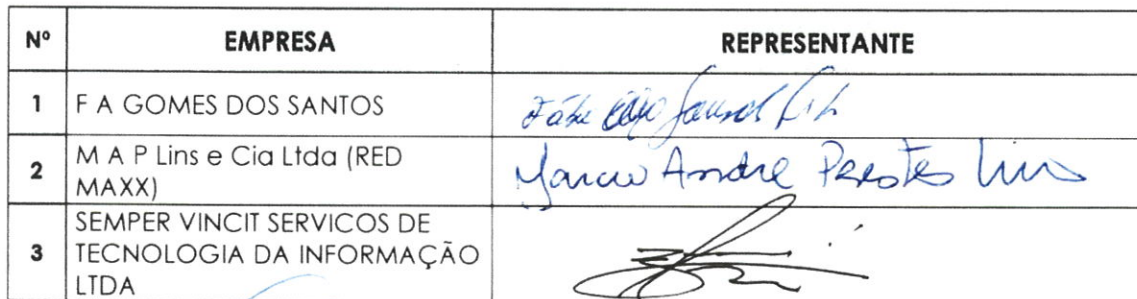 Nº EMPRESA REPRESENTANTE
1 F A GOMES DOS SANTOS
2 M A P Lins e Cia Ltda (RED
MAXX) Marcio Andre Prestes Lins
3 SEMPER VINCIT SERVICOS DE
TECNOLOGIA DA INFORMAÇÃO
LTDA